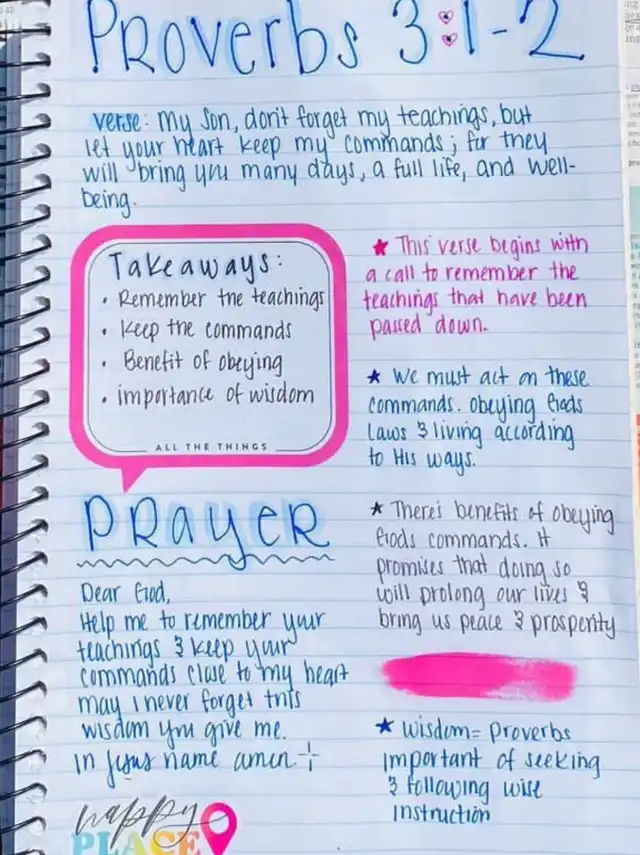 Proverbs 3:1-2
verse: my son, don't forget my teachings, but
let your heart keep my commands; for they
will bring you many days, a full life, and well-
being.
Takeaways:
• Remember the teachings
• Keep the commands
• Benefit of obeying
• importance of wisdom
ALL THE THINGS
★ This verse begins with
a call to remember the
teachings that have been
passed down.
★ We must act on these
commands. obeying Gods
Laws & living according
to His ways.
PRAYER
Dear God,
Help me to remember your
teachings & keep your
commands close to my heart
may I never forget this
wisdom you give me.
In Jesus name amen
★ There's benefits of obeying
Gods commands. it
promises that doing so
will prolong our lives &
bring us peace & prosperity
★ wisdom = Proverbs
important of seeking
& following wise
instruction
happy
PLACE